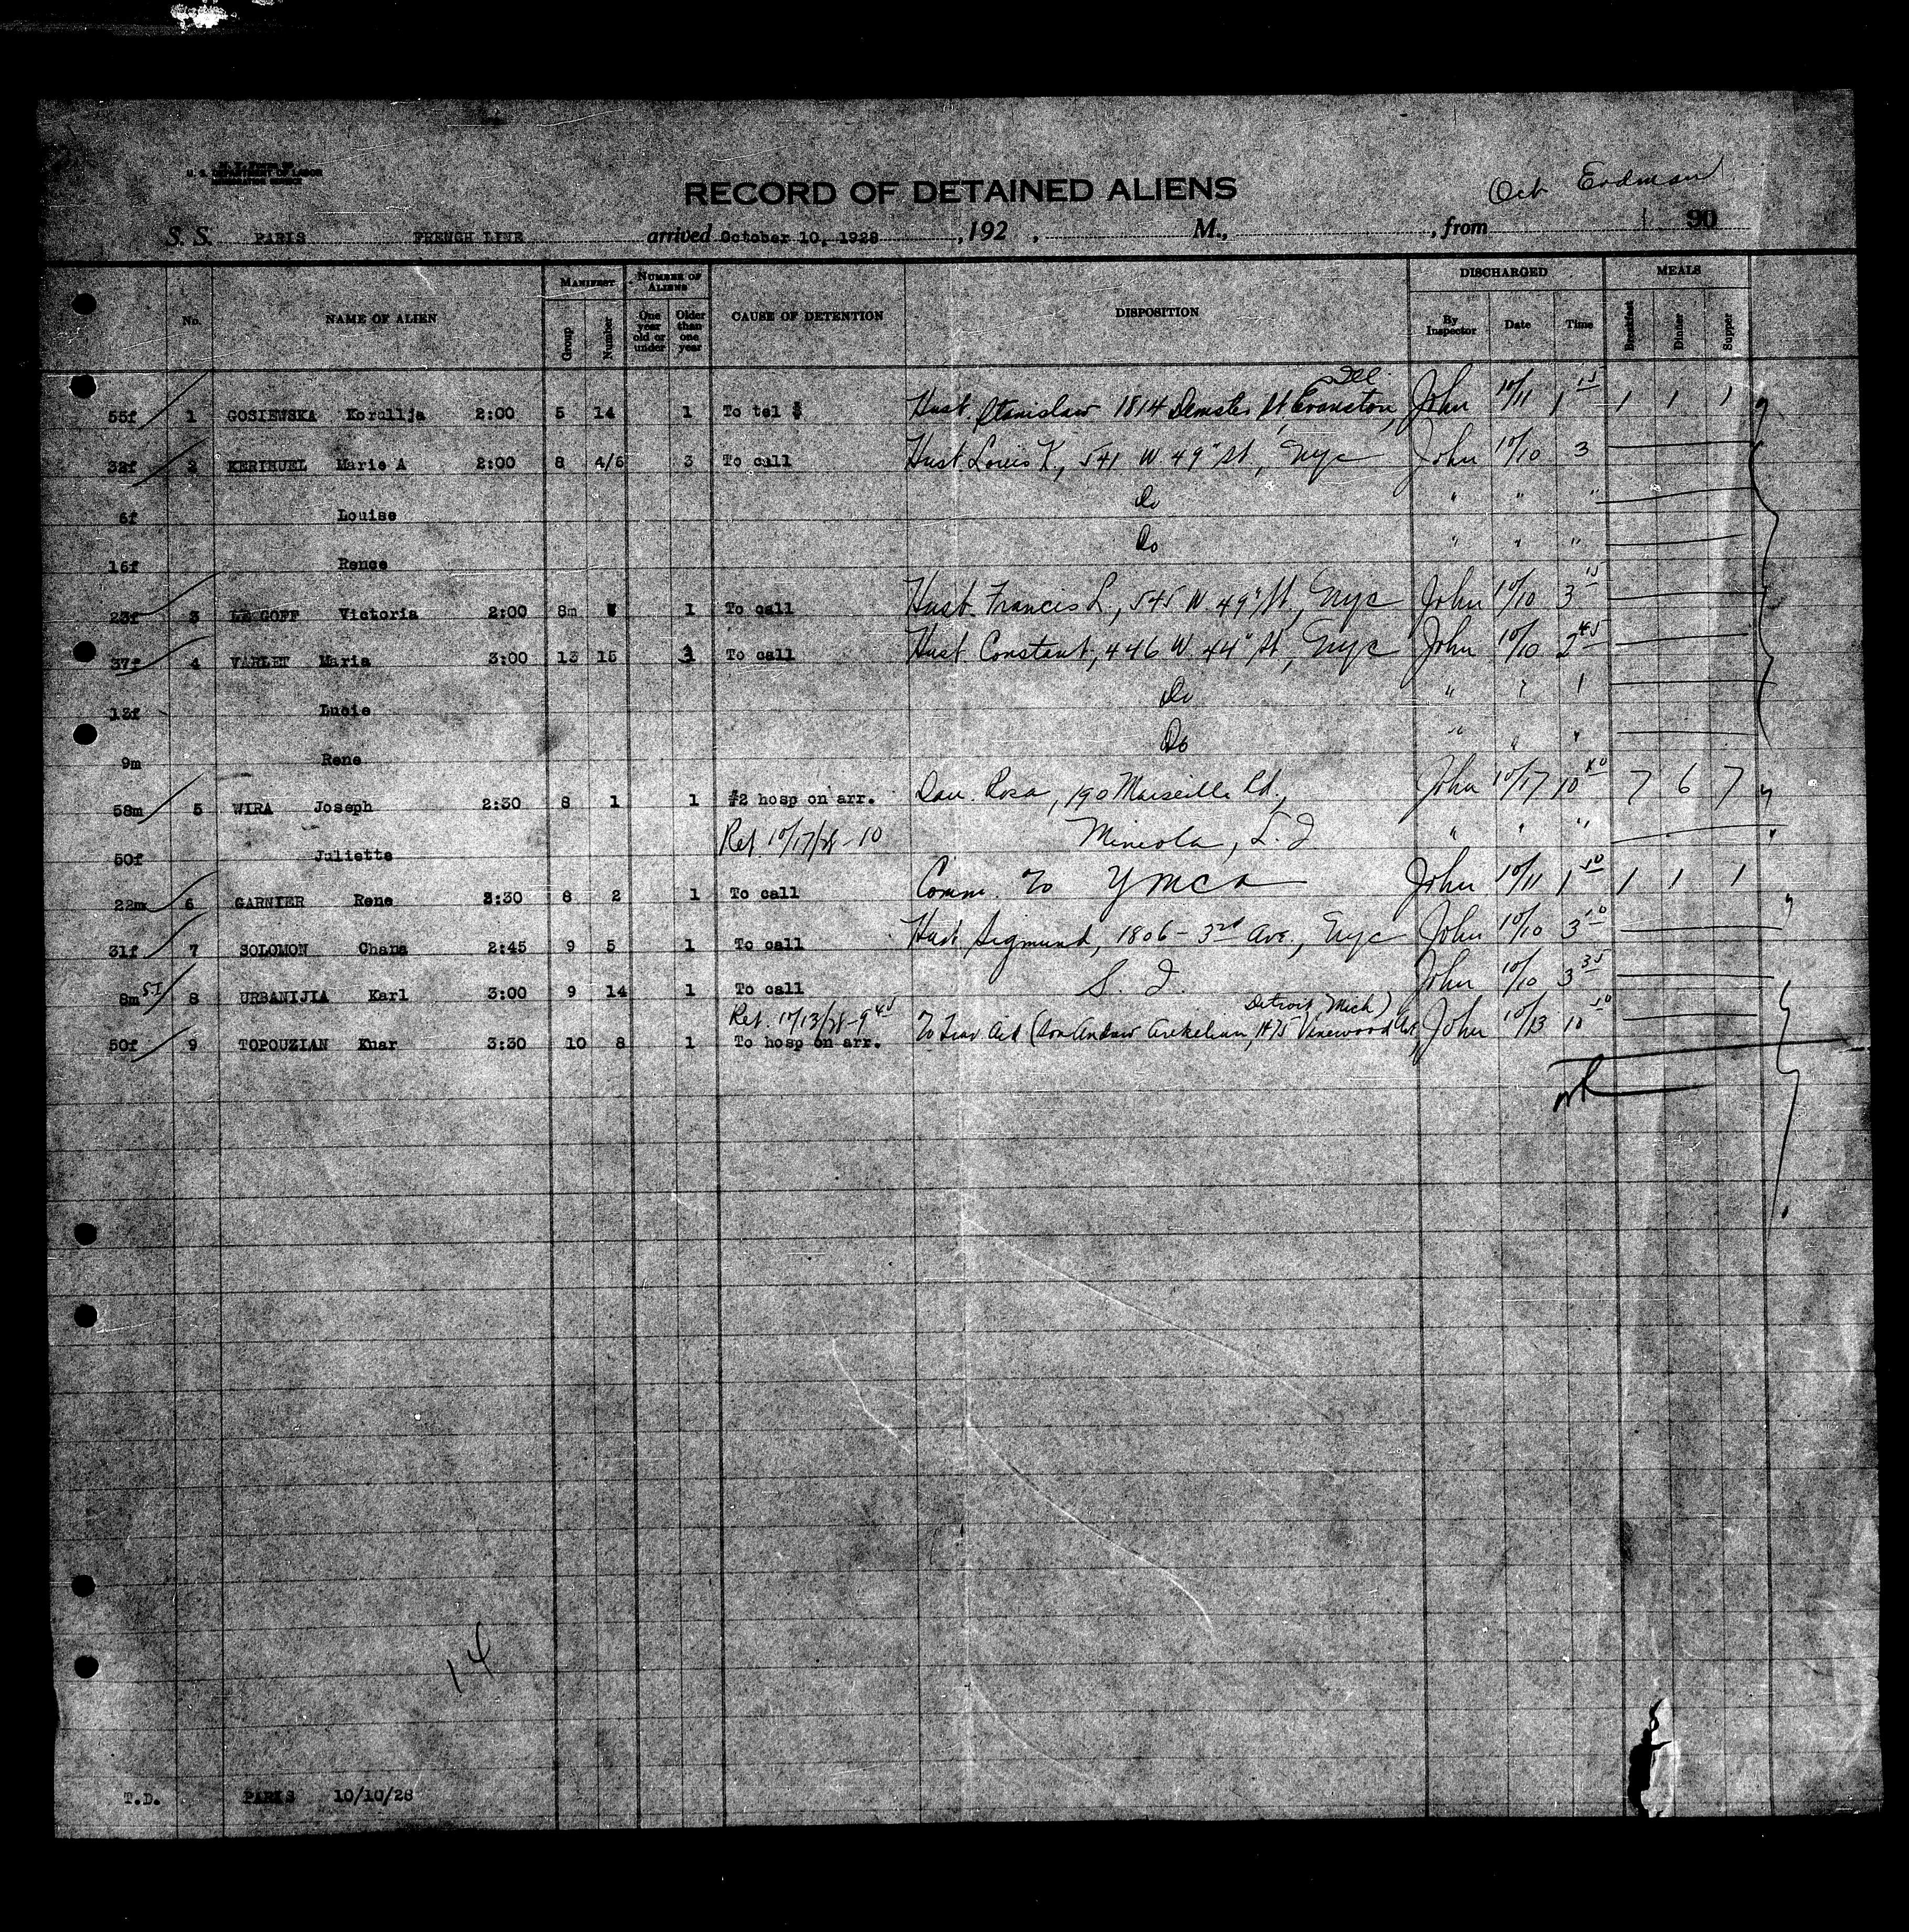 U. S. DEPARTMENT OF LABOR
IMMIGRATION SERVICE
RECORD OF DETAINED ALIENS
Oct Erdman
S. S. PARIS FRENCH LINE arrived October 10, 1928, 192 , M., , from 90
No. NAME OF ALIEN MANIFEST NUMBER OF ALIENS CAUSE OF DETENTION DISPOSITION DISCHARGED MEALS
Group Number One year old or under Older than one year By Inspector Date Time Breakfast Dinner Supper
55f 1 GOSIEWSKA Korullja 2:00 5 14 1 To tel $ Husb Stanislaw 1814 Demster St Evanston, Ill. John 10/11 1 15 1 1 1
32f 2 KERIHUEL Marie A 2:00 8 4/6 3 To call Husb Louis K, 541 W 49" St, Nyc John 10/10 3
6f Louise Do " " "
16f Renee Do " " "
23f 3 LE GOFF Victoria 2:00 8m 1 To call Husb Francis L, 545 W 49" St, Nyc John 10/10 3 15
37f 4 VARLET Maria 3:00 13 15 3 To call Husb Constant, 446 W 44" St, Nyc John 10/10 2 45
13f Lucie Do " "
9m Rene Do " " "
58m 5 WIRA Joseph 2:30 8 1 1 #2 hosp on arr. Dau. Rosa, 190 Marseille Rd., John 10/17 10 7 6 7
50f Juliette Ret 10/17/28-10 Mineola, L. I. " " "
22m 6 GARNIER Rene 2:30 8 2 1 To call Comm. To YMCA John 10/11 1 50 1 1 1
31f 7 SOLOMON Chana 2:45 9 5 1 To call Husb Sigmund, 1806 - 3rd Ave, Nyc John 10/10 3
8m S.I 8 URBANIJIA Karl 3:00 9 14 1 To call S. I. John 10/10 3 35
Ret. 10/13/28-9 45 Detroit, Mich)
50f 9 TOPOUZIAN Knar 3:30 10 8 1 To hosp on arr. To Trav Aid (Son Andrew Arekelian, 1475 Vinewood Ave, John 10/13 10 50
14
T.D. PARIS 10/10/28